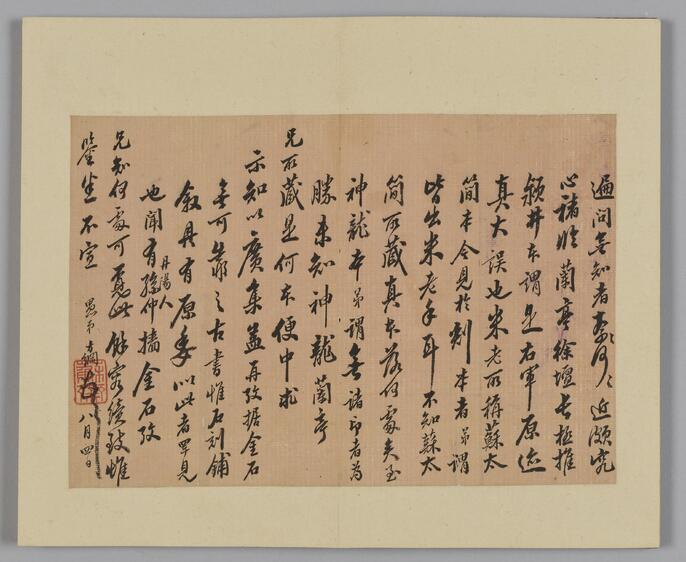 遍問無知者奈何々近頗究
心褚臨蘭亭徐壇長極推
潁井本謂是右軍原迹
真大誤也米老所稱蘇太
簡本今見於刻本者弟謂
皆出米老手耳不知蘇太
簡所藏真本落何處矣至
神龍本弟謂無諸印者為
勝未知神龍蘭亭
兄所藏是何本便中求
示知以廣集益再攷據金石
無可靠之古書惟石刻鋪
敘具有原委以此者罕見
也聞有孫仲墻金石攷
丹陽人
兄知何處可覓此 續致惟
鑒坐不宣 愚弟 綱 八月四日